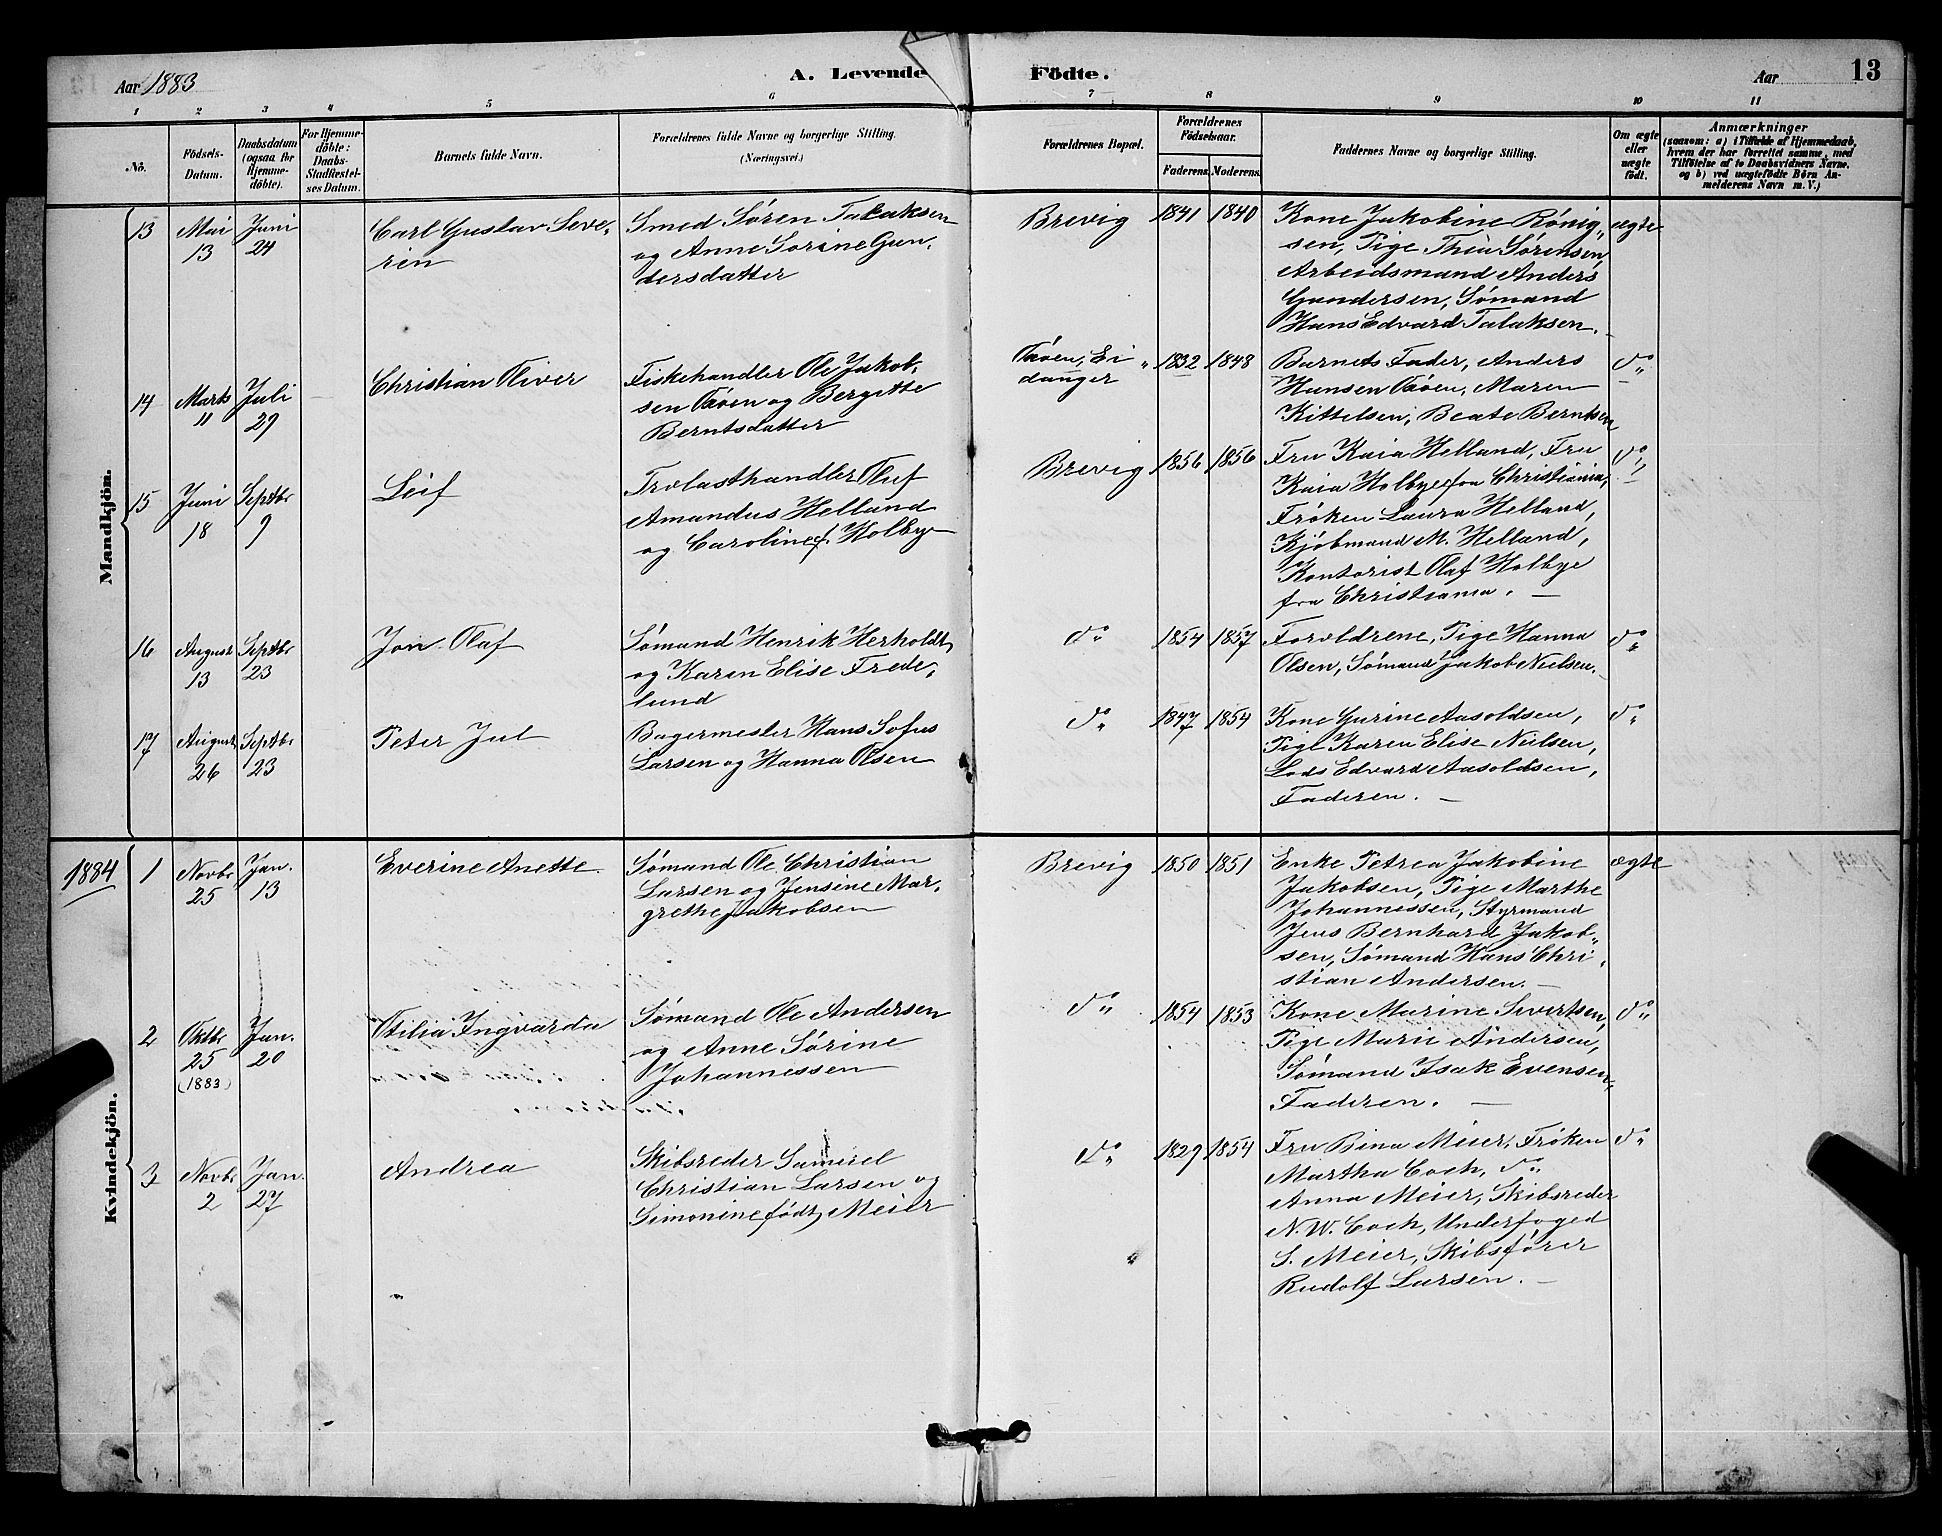 Aar 1883
A. Levende Födte.
Aar
13
1 2 3 4 5 6 7 8 9 10 11
No.
Födsels-Datum.
Daabsdatum (ogsaa for Hjemmedöbte).
For Hjemmedöbte: Daabs-Stadfæstelses Datum.
Barnets fulde Navn.
Forældrenes fulde Navne og borgerlige Stilling.
(Næringsvei.)
Forældrenes Bopæl.
Forældrenes Födselsaar.
Faderens. Moderens.
Faddernes Navne og borgerlige Stilling.
Om ægte eller uægte födt.
Anmærkninger
(saasom: a) i Tilfælde af Hjemmedaab,
hvem der har forrettet samme, med
Tilföielse af to Daabsvidners Navne,
og b) ved uægtefödte Börn Anmelderens Navn m. V.)
Mandkjön.
13 Mai 13 Juni 24
Carl Gustav Seve-
rin
Smed Søren Talaksen
og Anne Sorine Gun-
dersdatter
Brevig 1841 1840
Kone Jakobine Rönig-
sen, Pige Thea Sørensen,
Arbeidsmand Anders
Gundersen, Sømand
Hans Edvard Talaksen.
ægte
14 Marts 11 Juli 29
Christian Oliver
Fiskehandler Ole Jakob-
sen Øen og Bergitte
Berntsdatter
Ei-
danger
1832 1848
Barnets Fader, Anders
Hansen Maren
Kittelsen, Beate Berntsen
do
15 Juni 18 Septbr 9
Leif
Trælasthandler Oluf
Amandus Helland
og Caroline f. Holbye
Brevig 1856 1856
Fru Kaia Helland, Fru
Kaia Holbye fra Christiania,
Frøken Laura Helland,
Kjøbmand M. Helland,
Kontorist Olaf Holbye
fra Christiania. —
do
16 August 13 Septbr 23
Jon Olaf
Sømand Henrik Herholdt
og Karen Elise Frede-
lund
do 1854 1857
Forældrene, Pige Hanna
Olsen, Sømand Jakob Nielsen.
do
17 August 26 Septbr 23
Peter Jul
Bagermester Hans Sofus
Larsen og Hanna Olsen
do 1847 1854
Kone Gurine Aasoldsen,
Pige Karen Elise Nielsen,
Lods Edvard Aasoldsen,
Faderen. —
do
Kvindekjön.
1884
1 Novbr 25 Jan. 13
Everine Anette
Sømand Ole Christian
Larsen og Jensine Mar-
grethe Jakobsen
Brevig 1850 1851
Enke Petrea Jakobine
Jakobsen, Pige Marthe
Johannessen, Styrmand
Jens Bernhard Jakob-
sen, Sømand Hans Chri-
stian Andersen. —
ægte
2 Oktbr 25 (1883) Jan. 20
Otilia Ingvarda
Sømand Ole Andersen
og Anne Sørine
Johannessen
do 1854 1853
Kone Marine Sivertsen,
Pige Marie Andersen,
Sømand Isak Evensen,
Faderen. —
do
3 Novbr 2 Jan. 27
Andrea
Skibsreder Samuel
Christian Larsen og
Simonine født Meier
do 1829 1854
Fru Bina Meier, Frøken
Martha Coch, do
Anna Meier, Skibsreder
N. W. Coch, Underfoged
S. Meier, Skibsfører
Rudolf Larsen. —
do